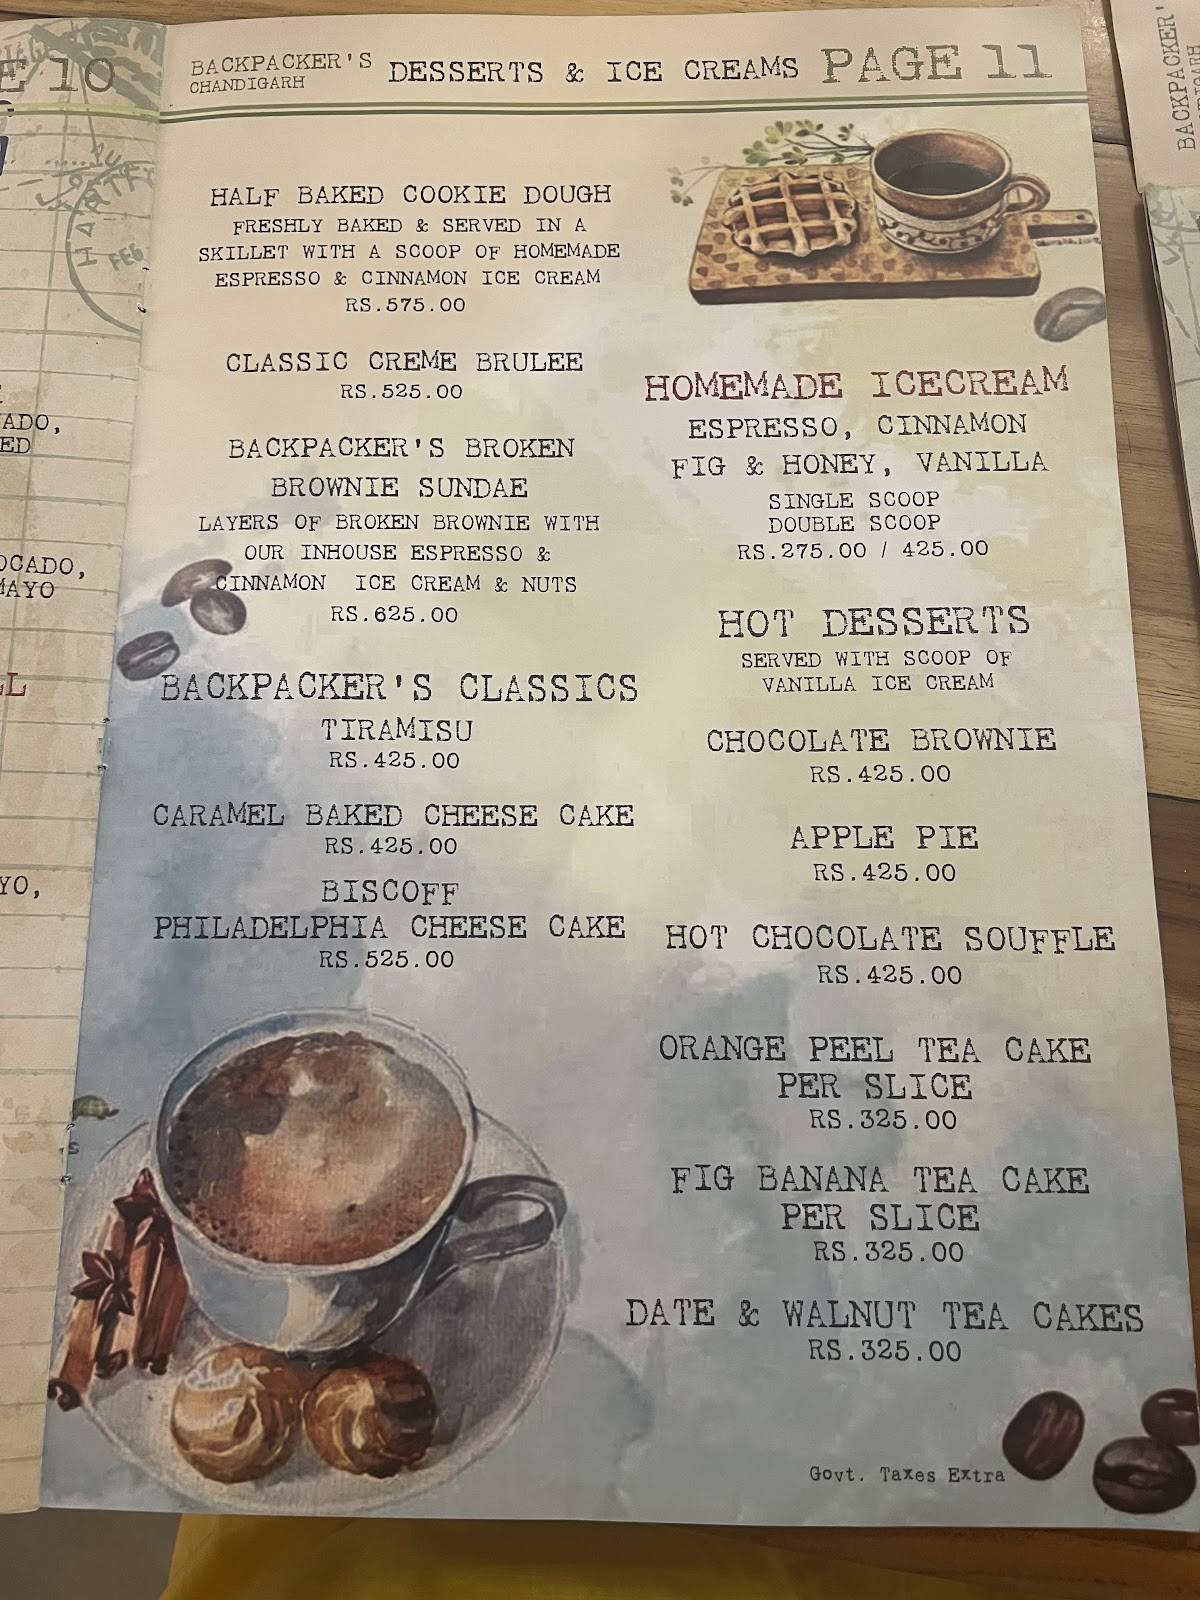 E 10
BACKPACKER'S
CHANDIGARH
DESSERTS & ICE CREAMS
PAGE 11
HALF BAKED COOKIE DOUGH
FRESHLY BAKED & SERVED IN A
SKILLET WITH A SCOOP OF HOMEMADE
ESPRESSO & CINNAMON ICE CREAM
RS.575.00
CLASSIC CREME BRULEE
RS.525.00
BACKPACKER'S BROKEN
BROWNIE SUNDAE
LAYERS OF BROKEN BROWNIE WITH
OUR INHOUSE ESPRESSO &
CINNAMON ICE CREAM & NUTS
RS.625.00
BACKPACKER'S CLASSICS
TIRAMISU
RS.425.00
CARAMEL BAKED CHEESE CAKE
RS.425.00
BISCOFF
PHILADELPHIA CHEESE CAKE
RS.525.00
HOMEMADE ICECREAM
ESPRESSO, CINNAMON
FIG & HONEY, VANILLA
SINGLE SCOOP
DOUBLE SCOOP
RS.275.00 / 425.00
HOT DESSERTS
SERVED WITH SCOOP OF
VANILLA ICE CREAM
CHOCOLATE BROWNIE
RS.425.00
APPLE PIE
RS.425.00
HOT CHOCOLATE SOUFFLE
RS.425.00
ORANGE PEEL TEA CAKE
PER SLICE
RS.325.00
FIG BANANA TEA CAKE
PER SLICE
RS.325.00
DATE & WALNUT TEA CAKES
RS.325.00
Govt. Taxes Extra
ADO,
ED
OCADO,
MAYO
LL
YO,
BACKPACKER'